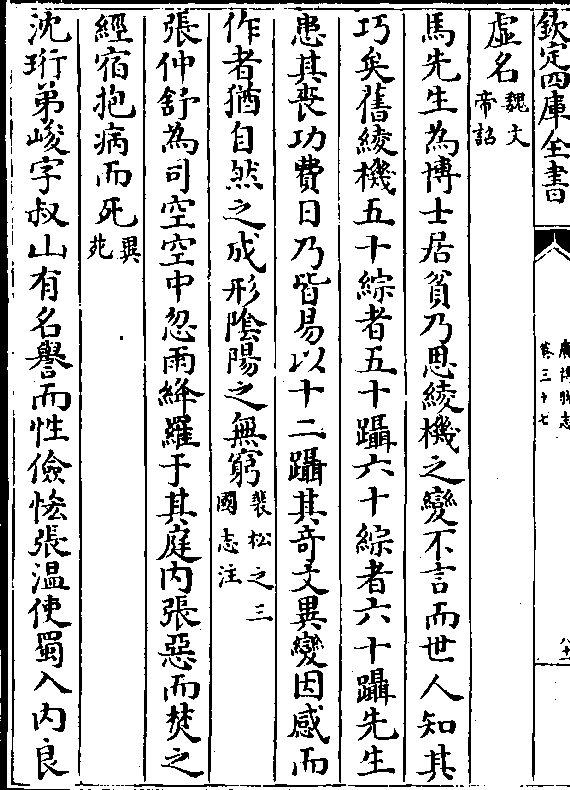 欽定四庫全書
廣博物志
卷三十七
虛名魏文帝詔
馬先生為博士居貧乃思綾機之變不言而世人知其
巧矣舊綾機五十綜者五十躡六十綜者六十躡先生
患其喪功費日乃皆易以十二躡其奇文異變因感而
作者猶自然之成形陰陽之無窮裴松之三國志注
張仲舒為司空空中忽雨絳羅于其庭内張惡而焚之
經宿抱病而死異苑
沈珩弟峻字叔山有名譽而性儉恡張溫使蜀入内良